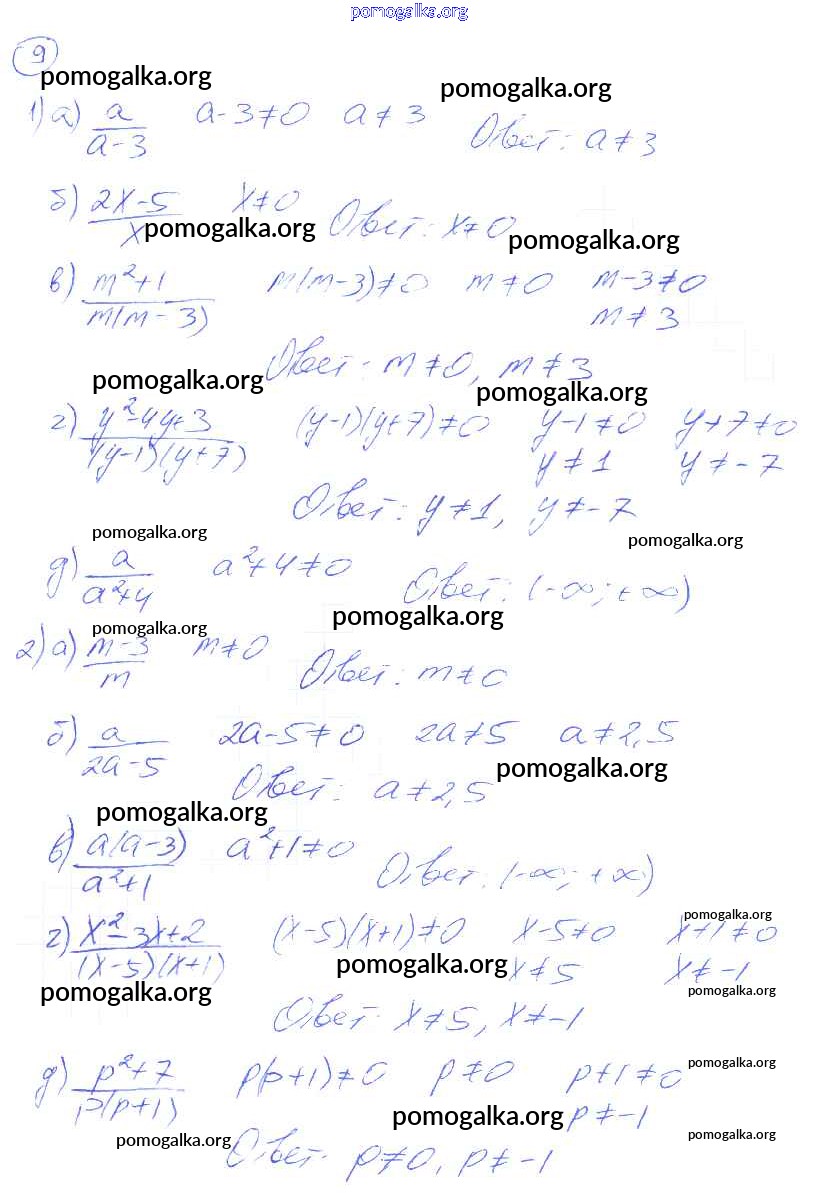 pomogalka.org
9
pomogalka.org pomogalka.org
1) а) a/(a-3) a-3≠0 a≠3 Ответ: a≠3
б) (2x-5)/x x≠0 Ответ: x≠0
pomogalka.org pomogalka.org
в) (m²+1)/(m(m-3)) m(m-3)≠0 m≠0 m-3≠0
m≠3
Ответ: m≠0, m≠3
pomogalka.org pomogalka.org
г) (y²-4y+3)/((y-1)(y+7)) (y-1)(y+7)≠0 y-1≠0 y+7≠0
y≠1 y≠-7
Ответ: y≠1, y≠-7
pomogalka.org pomogalka.org
д) a/(a²+4) a²+4≠0 Ответ: (-∞;+∞)
pomogalka.org
pomogalka.org
2) а) (m-3)/m m≠0 Ответ: m≠0
б) a/(2a-5) 2a-5≠0 2a≠5 a≠2,5
pomogalka.org
Ответ: a≠2,5
pomogalka.org
в) a(a-3)/(a²+1) a²+1≠0 Ответ: (-∞;+∞)
pomogalka.org
г) (x²-3x+2)/((x-5)(x+1)) (x-5)(x+1)≠0 x-5≠0 x+1≠0
pomogalka.org x≠5 x≠-1
pomogalka.org pomogalka.org
Ответ: x≠5, x≠-1
pomogalka.org
д) (p²+7)/(p(p+1)) p(p+1)≠0 p≠0 p+1≠0
pomogalka.org p≠-1
pomogalka.org pomogalka.org
Ответ: p≠0, p≠-1